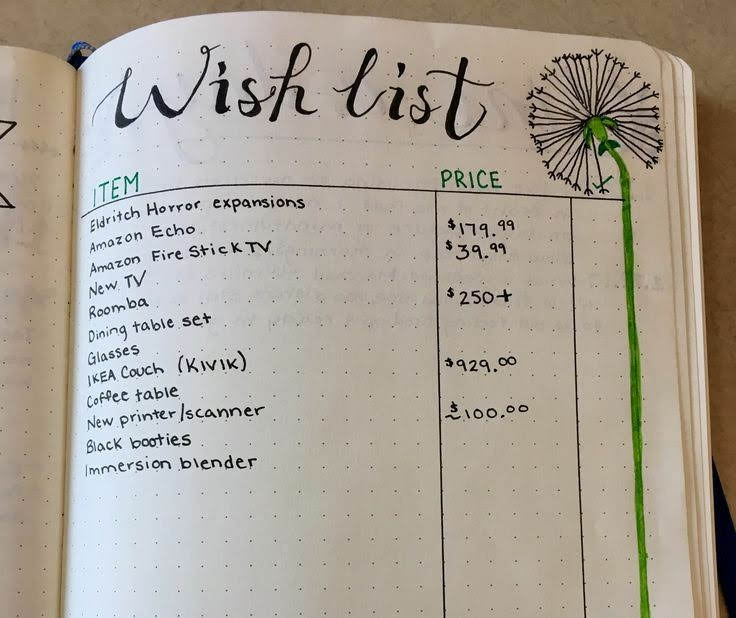 Wish list
ITEM PRICE ✓
Eldritch Horror expansions
Amazon Echo $179.99
Amazon Fire Stick TV $39.99
New TV
Roomba $250+
Dining table set
Glasses
IKEA Couch (KIVIK) $929.00
Coffee table
New printer/scanner ~$100.00
Black booties
Immersion blender